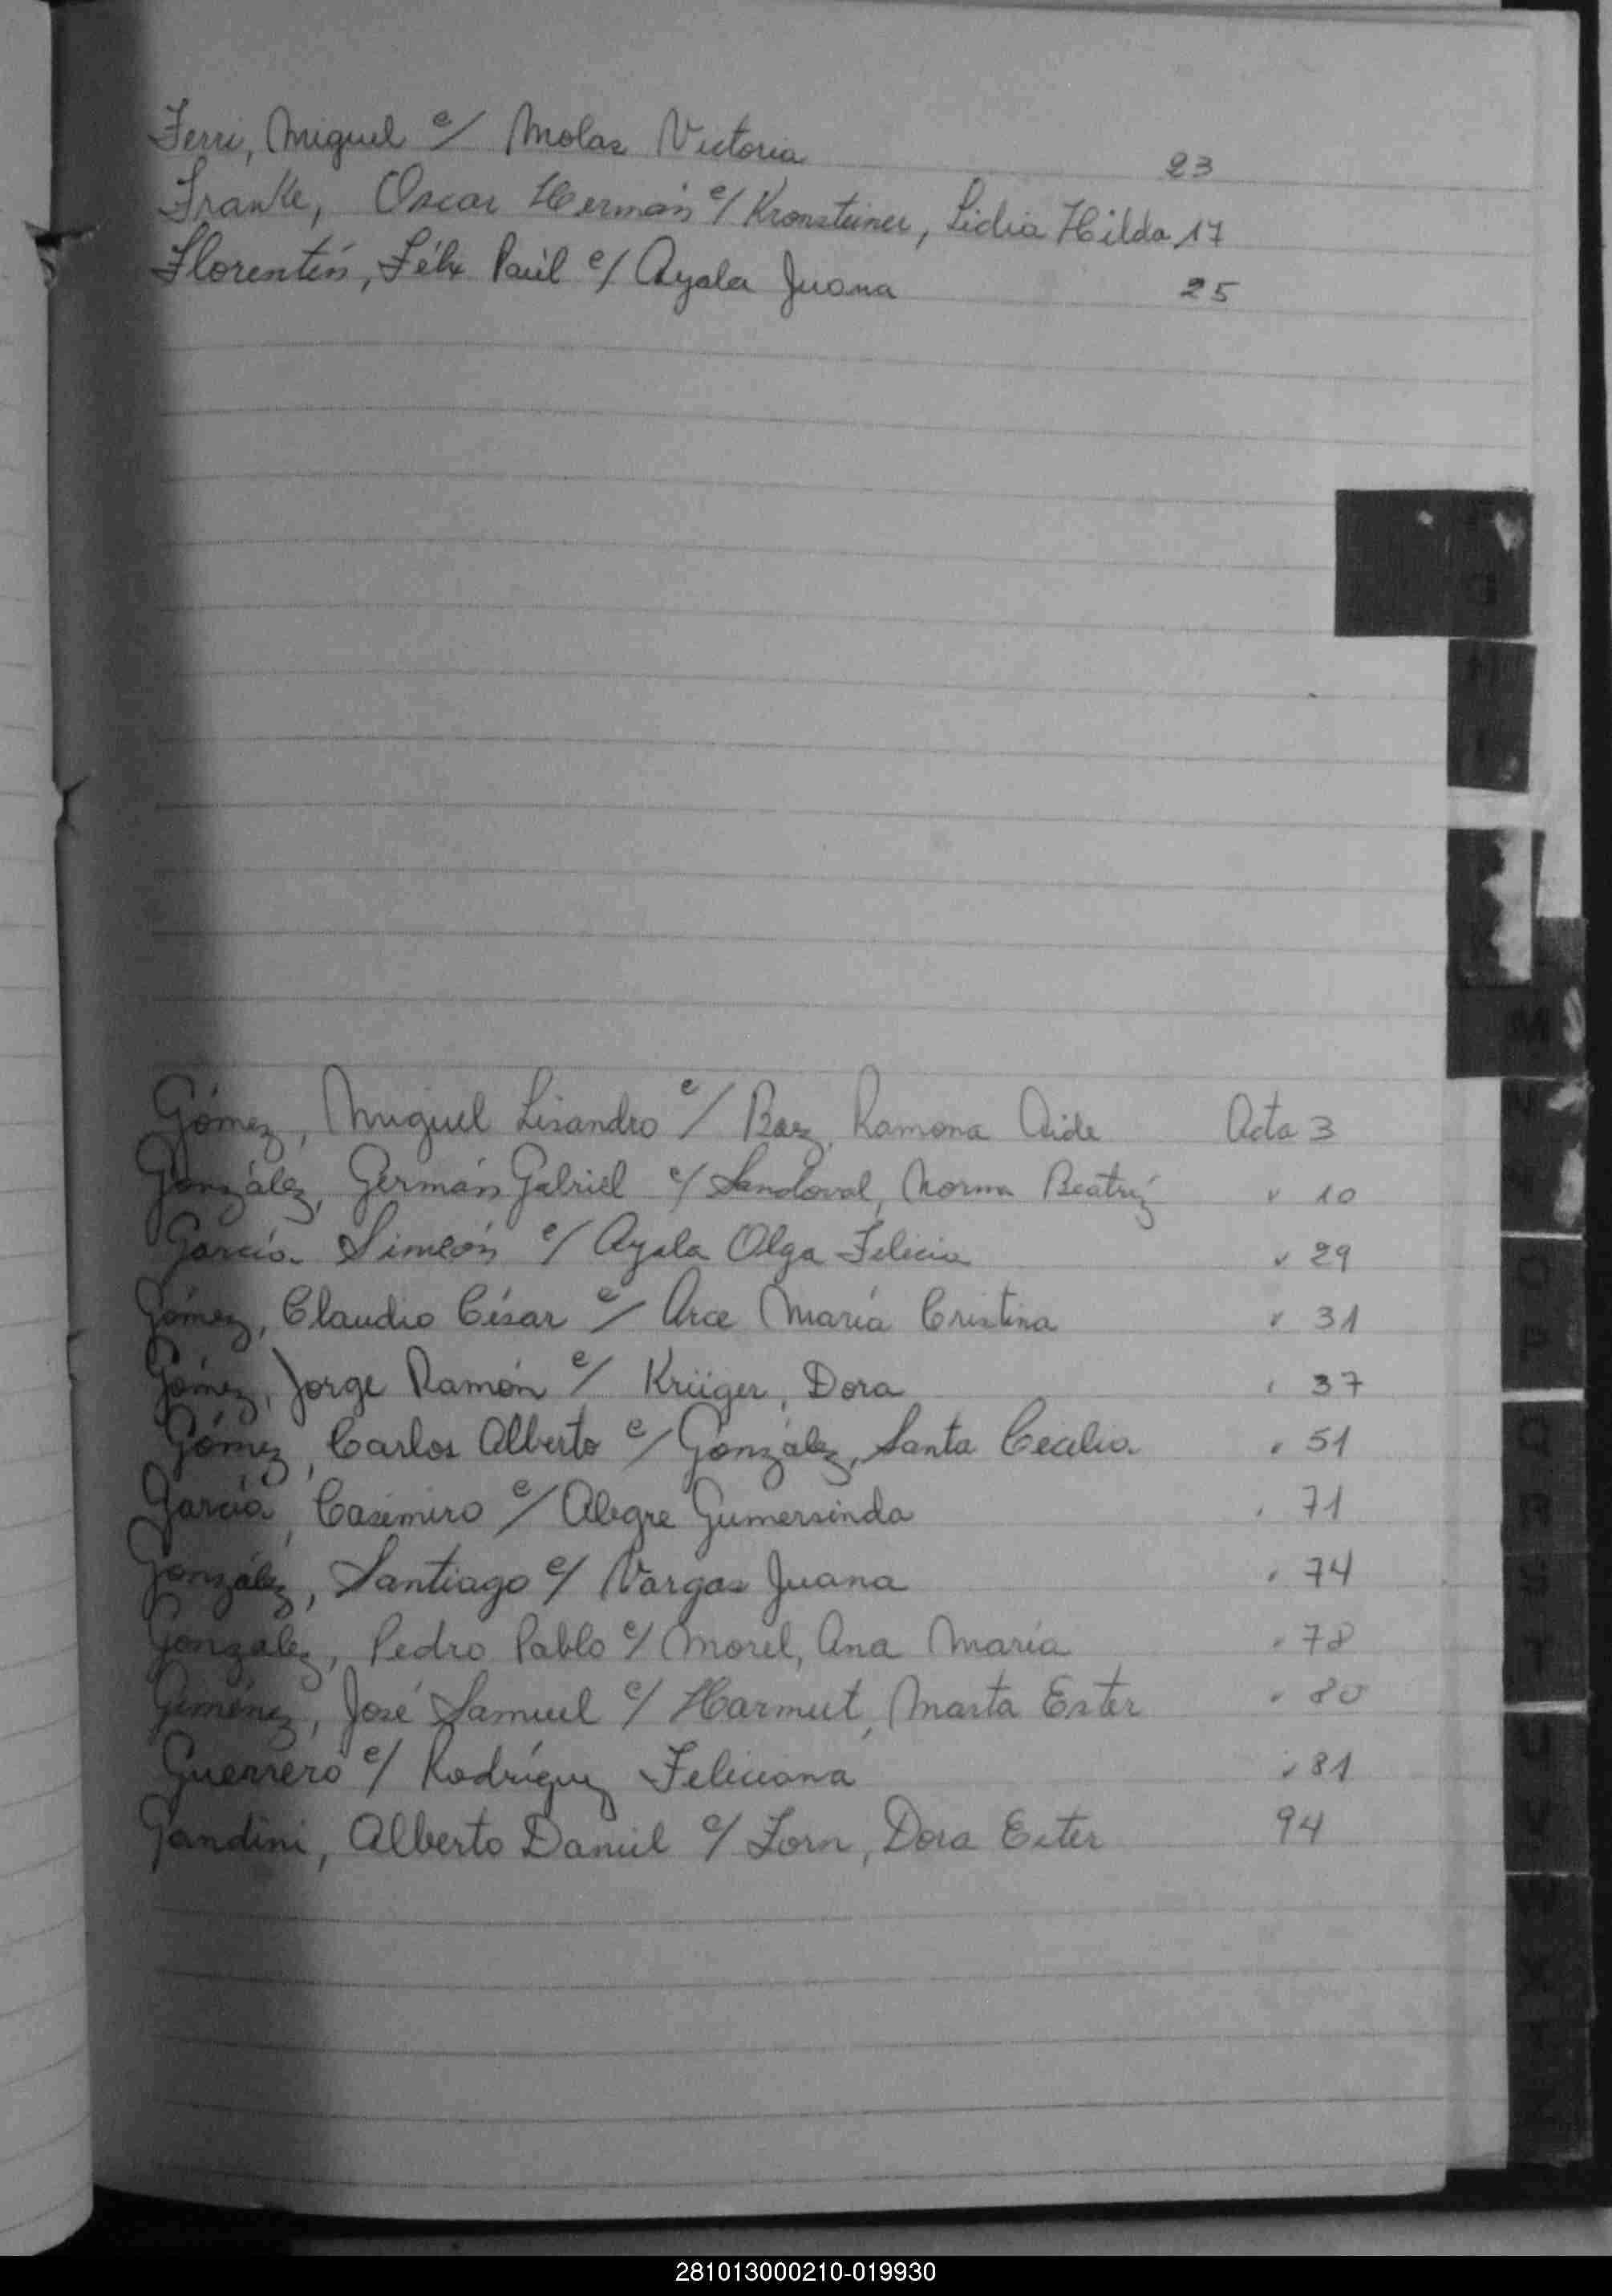 Ferri, Miguel c/ Molas Victoria 23
Franke, Oscar Hermán c/ Kronsteiner, Lidia Hilda 17
Florentín, Félix Paúl c/ Ayala Juana 25
Gómez, Miguel Lisandro c/ Baez, Ramona Aide Acta 3
González, Germán Gabriel c/ Sandoval, Norma Beatríz " 10
García Simeón c/ Ayala Olga Felicia " 29
Gómez, Claudio César c/ Arce María Cristina " 31
Gómez, Jorge Ramón c/ Krüger, Dora " 37
Gómez, Carlos Alberto c/ González, Santa Cecilia " 51
García, Casimiro c/ Alegre Gumersinda " 71
González, Santiago c/ Vargas Juana " 74
González, Pedro Pablo c/ Morel, Ana María " 78
Giménez, José Samuel c/ Harmut, Marta Ester " 80
Guerrero c/ Rodríguez Feliciana " 81
Gandini, Alberto Daniel c/ Zorn, Dora Ester 94
G
M
O
P
Q
R
S
T
U
V
X
281013000210-019930